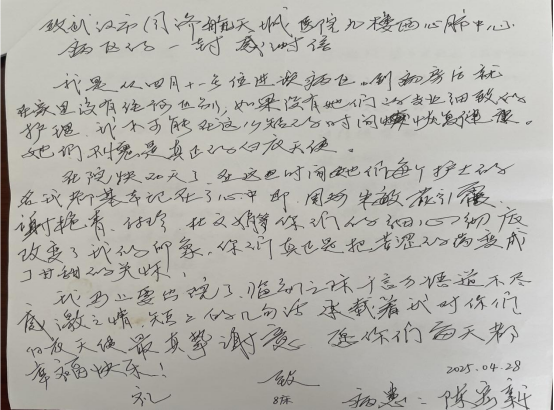 致武汉市同济航天城医院九楼西心肺中心
病区的一封感谢信
我是从四月十一号住进贵病区。到病房后就
在家里没有任何区别，如果没有她们的专业细致的
护理，我不可能在这么短的时间恢复健康。
她们不愧是真正的白衣天使。
住院快20天了，在这些时间她们每个护士的
名我都基本记在了心中即：周 朱敏
谢艳青、付珍、杜文娟等你们的细心 彻底
改变了我的印象。你们真也是把苦涩的药变成
了甘甜的美味！
我马上要出院了，临别之际千言万语道不尽
感激之情，短短的几句话承载着我对你们
白衣天使最真挚谢意。愿你们每天都
幸福快乐！
致
礼
8床
2025.04.28
病患：陈新